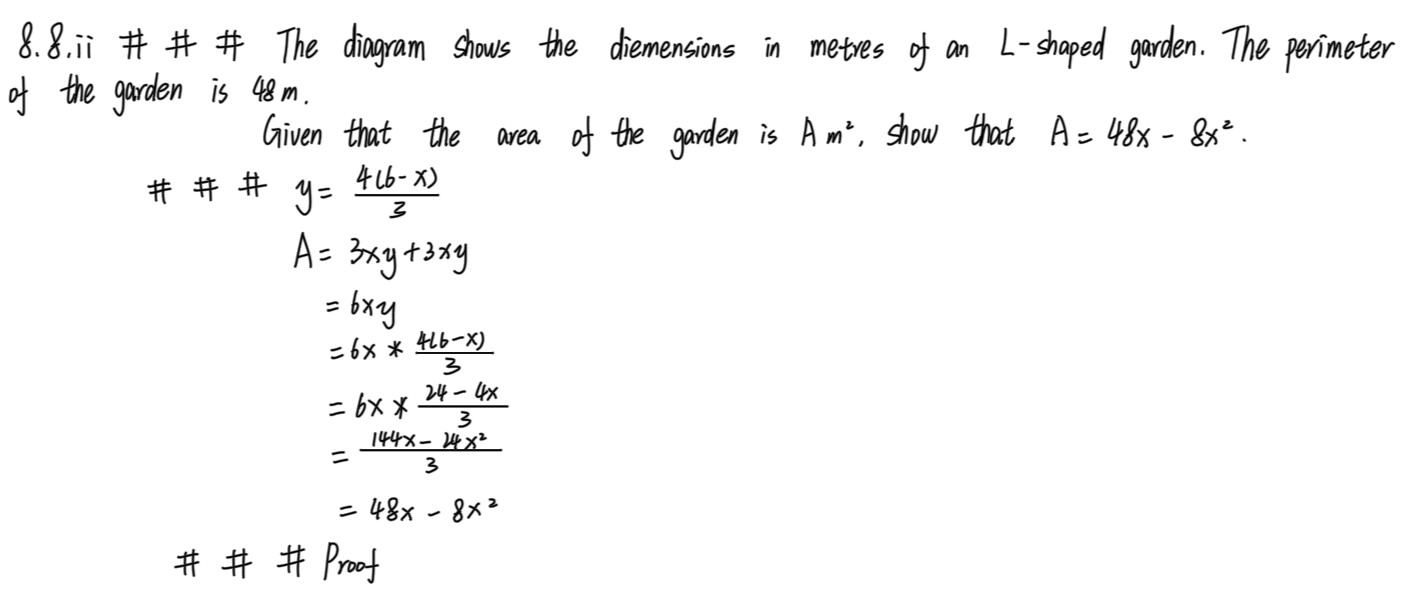 8.8.ii # # # The diagram shows the diemensions in metres of an L-shaped garden. The perimeter
of the garden is 48 m.
Given that the area of the garden is A m², show that A = 48x - 8x².
# # # y = \frac{4(6-x)}{3}
A = 3xy + 3xy
= 6xy
= 6x * \frac{4(6-x)}{3}
= 6x * \frac{24 - 4x}{3}
= \frac{144x - 24x²}{3}
= 48x - 8x²
# # # Proof